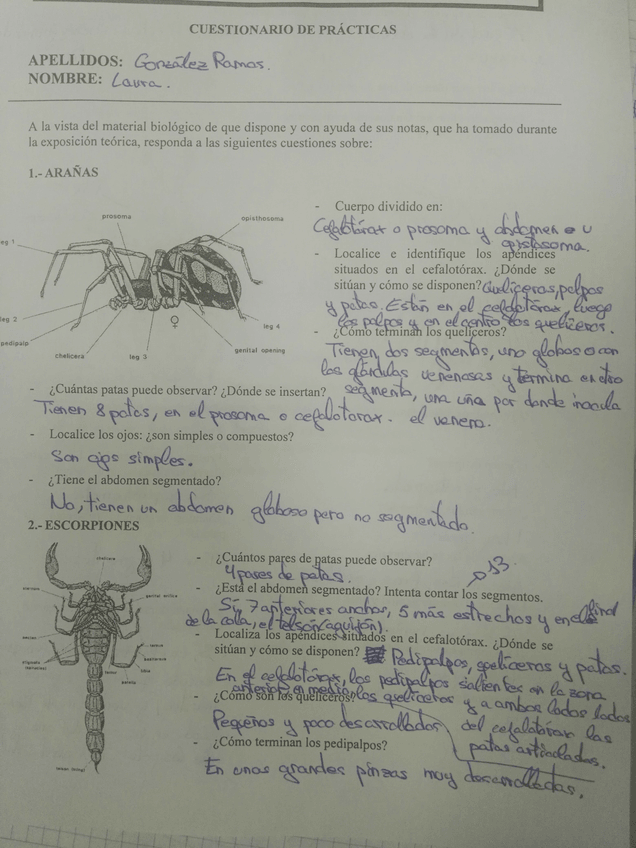 CUESTIONARIO DE PRÁCTICAS
APELLIDOS: González Ramos.
NOMBRE: Laura.
A la vista del material biológico de que dispone y con ayuda de sus notas, que ha tomado durante
la exposición teórica, responda a las siguientes cuestiones sobre:
1.- ARAÑAS
prosoma
opisthosoma
leg 1
leg 2
pedipalp
chelicera
leg 3
♀
leg 4
genital opening
- Cuerpo dividido en:
Cefalotórax o prosoma y abdomen o
- Localice e identifique los apéndices
situados en el cefalotórax. ¿Dónde se
sitúan y cómo se disponen? Quelíceros, palpos
y patas. Están en el cefalotórax, luego
los palpos y en el centro los quelíceros.
- ¿Cómo terminan los quelíceros?
Tienen dos segmentos, uno globoso con
las glándulas venenosas y termina en otro
segmento, una uña por donde inocula
el veneno.
- ¿Cuántas patas puede observar? ¿Dónde se insertan?
Tienen 8 patas, en el prosoma o cefalotorax.
- Localice los ojos: ¿son simples o compuestos?
Son ojos simples.
- ¿Tiene el abdomen segmentado?
No, tienen un abdomen globoso pero no segmentado.
2.- ESCORPIONES
chelicera
- ¿Cuántos pares de patas puede observar?
4 pares de patas.
- ¿Está el abdomen segmentado? Intenta contar los segmentos.
13
Sí, 7 anteriores anchos, 5 más estrechos y en el final
de la cola, el telson (aguijón).
- Localiza los apéndices situados en el cefalotórax. ¿Dónde se
sitúan y cómo se disponen? Pedipalpos, quelíceros y patas.
En el cefalotórax, los pedipalpos salientes en la zona
anterior, en medio los quelíceros y a ambos lados
del cefalotórax las
patas articuladas.
- ¿Cómo son los quelíceros?
Pequeños y poco desarrollados
- ¿Cómo terminan los pedipalpos?
En unas grandes pinzas muy desarrolladas.